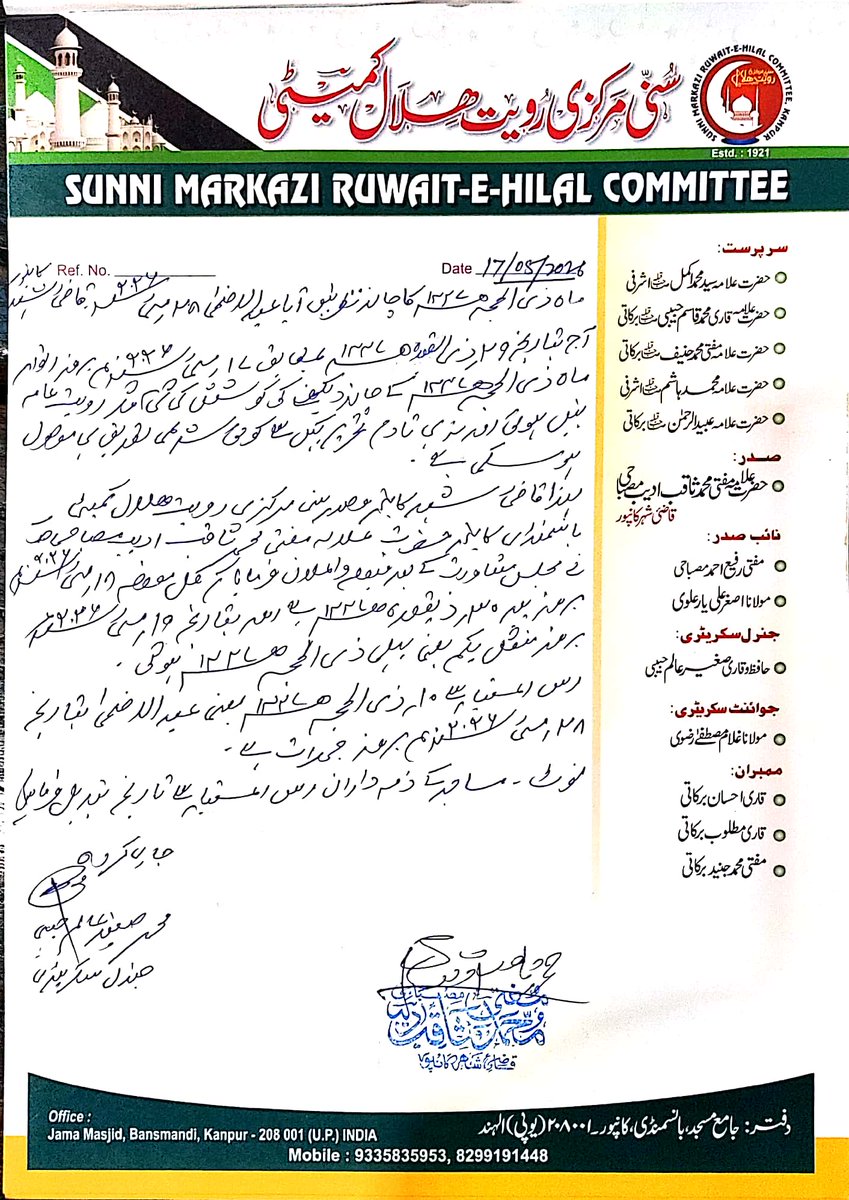 سنی مرکزی رویت ھلال کمیٹی
SUNNI MARKAZI RUWAIT-E-HILAL COMMITTEE, KANPUR
Estd. : 1921
SUNNI MARKAZI RUWAIT-E-HILAL COMMITTEE
Ref. No.
Date 17/05/2026
ماہ ذی الحجہ ۱۴۴۷ھ کا چاند نظر نہیں آیا عید الاضحیٰ ۲۸ مئی ۲۰۲۶ قاضی شہر کانپور
آج بتاریخ ۲۹ ذی القعدہ ۱۴۴۷ھ بمطابق ۱۷ مئی ۲۰۲۶ بروز اتوار
ماہ ذی الحجہ ۱۴۴۷ھ کے چاند دیکھنے کی کوشش کی گئی رویت عامہ
نہیں ہوئی اور نہ ہی تادم تحریر کہیں سے کوئی شرعی طریق موصول
ہو سکی ہے۔
لہذا قاضی شہر کانپور و صدر سنی مرکزی رویت ہلال کمیٹی
بانسمنڈی کانپور حضرت علامہ مفتی محمد ثاقب ادیب مصباحی
نے مجلس مشاورت کے بعد فیصلہ و اعلان فرمایا کہ کل ۱۸ مئی ۲۰۲۶
بروز پیر ۳۰ ذیقعدہ ۱۴۴۷ھ ہے اور بتاریخ ۱۹ مئی ۲۰۲۶
بروز منگل یکم یعنی پہلی ذی الحجہ ۱۴۴۷ھ ہوگی۔
اس اعتبار سے ۱۰ ذی الحجہ ۱۴۴۷ھ یعنی عید الاضحیٰ بتاریخ
۲۸ مئی ۲۰۲۶ بروز جمعرات ہے۔
نوٹ۔ مساجد کے ذمہ داران اس اعتبار سے تاریخ تبدیل فرمالیں
جاری کردہ
محمد صغیر عالم حبیبی
جنرل سکریٹری
مفتی محمد ثاقب ادیب مصباحی
قاضی شہر کانپور
سرپرست:
حضرت علامہ سید محمد اکمل اشرفی
حضرت علامہ قاری محمد قاسم حبیبی برکاتی
حضرت علامہ مفتی محمد حنیف برکاتی
حضرت علامہ محمد ہاشم اشرفی
حضرت علامہ عبید الرحمٰن برکاتی
صدر:
حضرت علامہ مفتی محمد ثاقب ادیب مصباحی
قاضی شہر کانپور
نائب صدر:
مفتی رفیع احمد مصباحی
مولانا اصغر علی یار علوی
جنرل سکریٹری:
حافظ و قاری صغیر عالم حبیبی
جوائنٹ سکریٹری:
مولانا غلام مصطفےٰ رضوی
ممبران:
قاری احسان برکاتی
قاری مطلوب برکاتی
مفتی محمد جنید برکاتی
Office :
Jama Masjid, Bansmandi, Kanpur - 208 001 (U.P.) INDIA
دفتر: جامع مسجد، بانسمنڈی، کانپور۔۲۰۸۰۰۱ (یوپی) الہند
Mobile : 9335835953, 8299191448